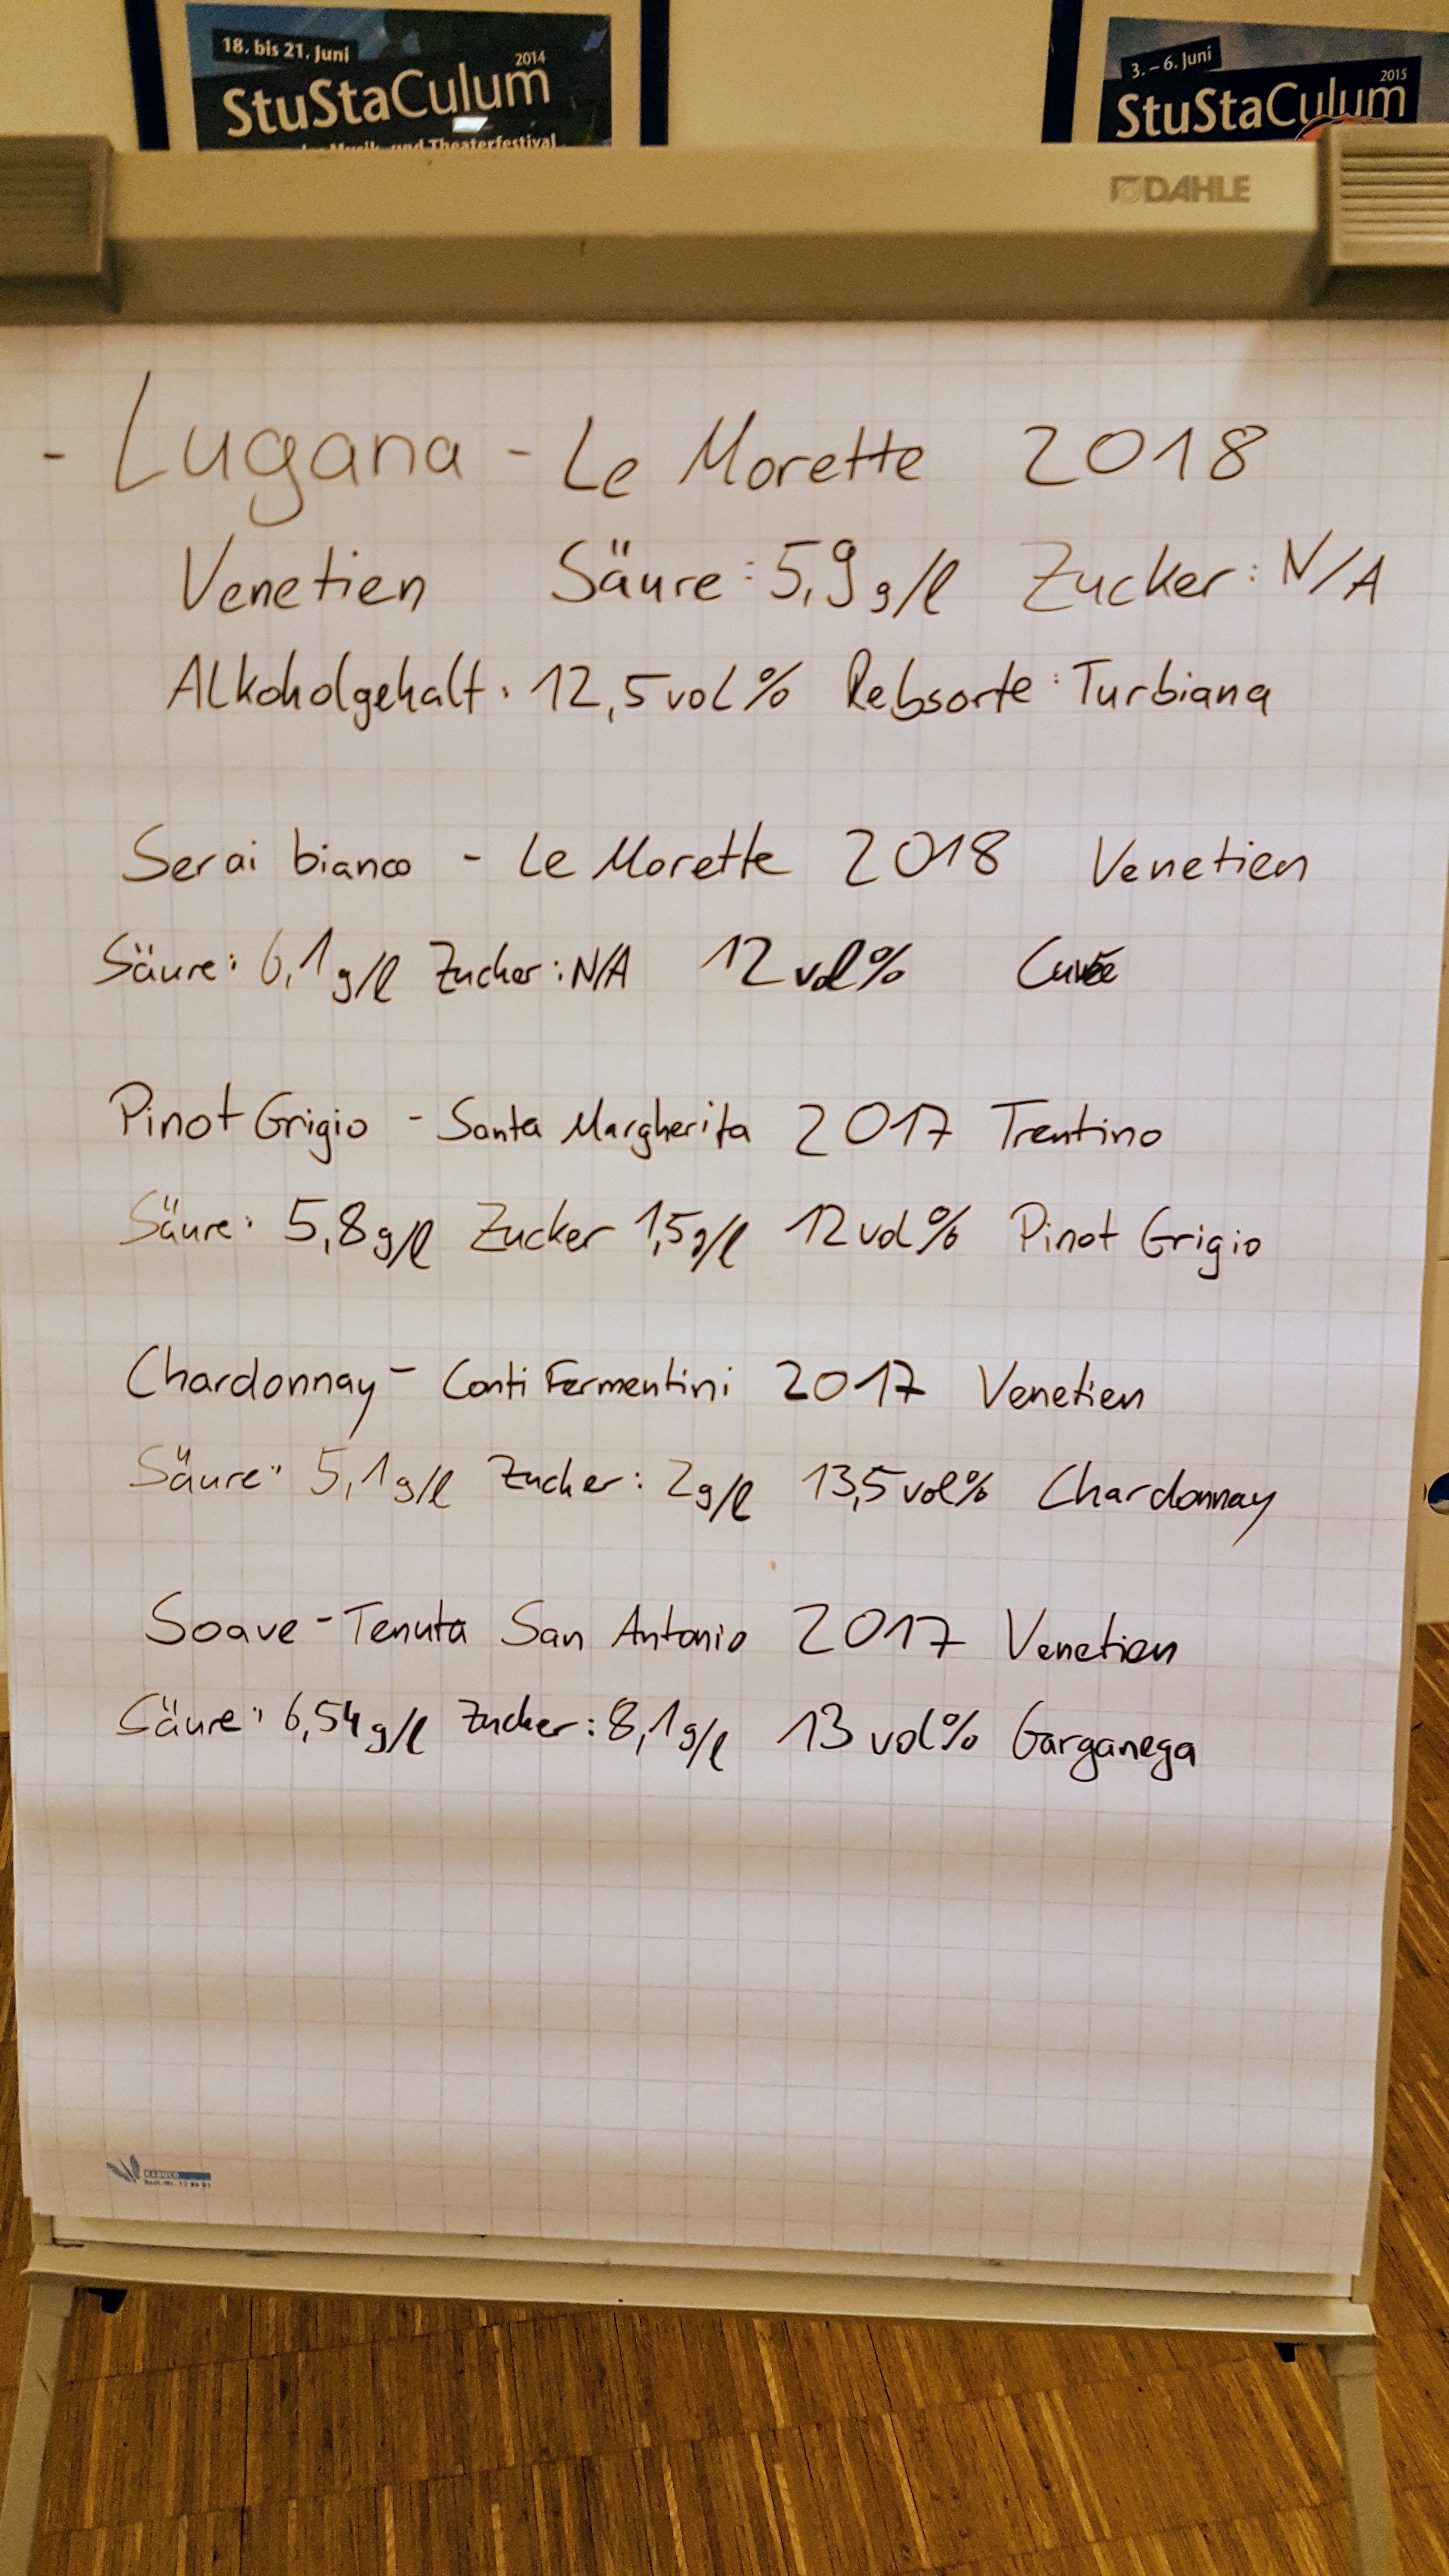 18. bis 21. Juni
2014
StuStaCulum
Musik- und Theaterfestival
3. – 6. Juni
2015
StuStaCulum
DAHLE
- Lugana - Le Morette 2018
Venetien Säure: 5,9 g/l Zucker: N/A
Alkoholgehalt: 12,5 vol% Rebsorte: Turbiana
Serai bianco - Le Morette 2018 Venetien
Säure: 6,1 g/l Zucker: N/A 12 vol% Cuvée
Pinot Grigio - Santa Margherita 2017 Trentino
Säure: 5,8 g/l Zucker 1,5 g/l 12 vol% Pinot Grigio
Chardonnay - Conti Fermentini 2017 Venetien
Säure: 5,1 g/l Zucker: 2 g/l 13,5 vol% Chardonnay
Soave - Tenuta San Antonio 2017 Venetien
Säure: 6,54 g/l Zucker: 8,1 g/l 13 vol% Garganega